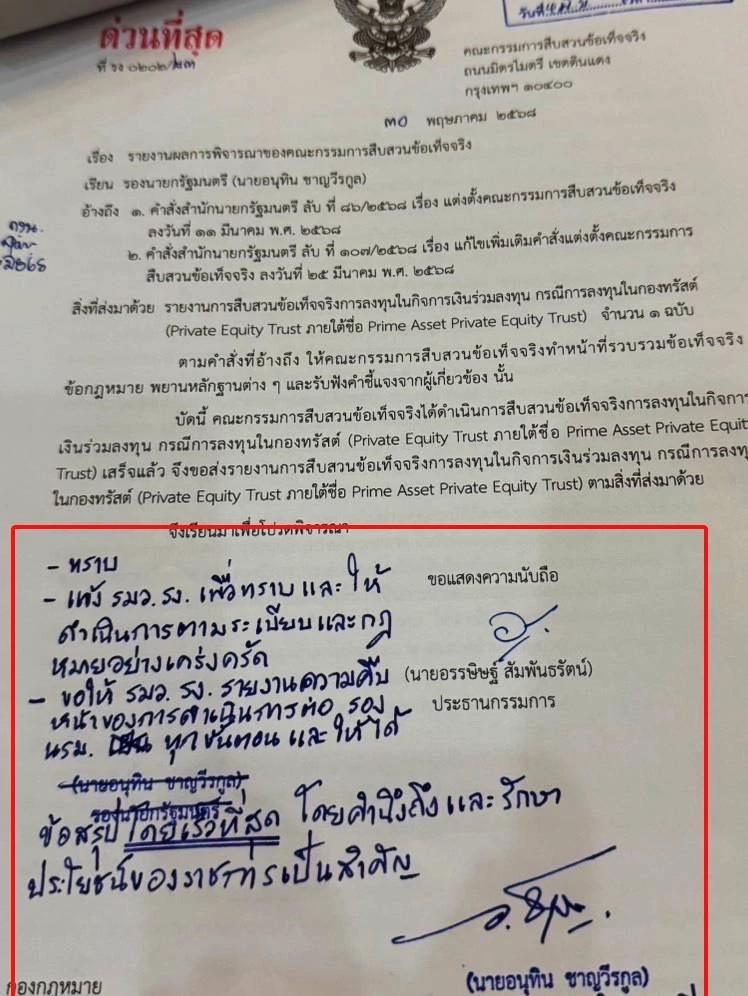 ด่วนที่สุด
ที่ รง ๐๒๐๒/
วันที่
คณะกรรมการสืบสวนข้อเท็จจริง
ถนนมิตรไมตรี เขตดินแดง
กรุงเทพฯ ๑๐๔๐๐
๓๐ พฤษภาคม ๒๕๖๘
เรื่อง รายงานผลการพิจารณาของคณะกรรมการสืบสวนข้อเท็จจริง
เรียน รองนายกรัฐมนตรี (นายอนุทิน ชาญวีรกูล)
อ้างถึง ๑. คำสั่งสำนักนายกรัฐมนตรี ลับ ที่ ๘๖/๒๕๖๘ เรื่อง แต่งตั้งคณะกรรมการสืบสวนข้อเท็จจริง
ลงวันที่ ๑๑ มีนาคม พ.ศ. ๒๕๖๘
๒. คำสั่งสำนักนายกรัฐมนตรี ลับ ที่ ๑๐๗/๒๕๖๘ เรื่อง แก้ไขเพิ่มเติมคำสั่งแต่งตั้งคณะกรรมการ
สืบสวนข้อเท็จจริง ลงวันที่ ๒๕ มีนาคม พ.ศ. ๒๕๖๘
สิ่งที่ส่งมาด้วย รายงานการสืบสวนข้อเท็จจริงการลงทุนในกิจการเงินร่วมลงทุน กรณีการลงทุนในกองทรัสต์
(Private Equity Trust ภายใต้ชื่อ Prime Asset Private Equity Trust) จำนวน ๑ ฉบับ
ตามคำสั่งที่อ้างถึง ให้คณะกรรมการสืบสวนข้อเท็จจริงทำหน้าที่รวบรวมข้อเท็จจริง
ข้อกฎหมาย พยานหลักฐานต่าง ๆ และรับฟังคำชี้แจงจากผู้เกี่ยวข้อง นั้น
บัดนี้ คณะกรรมการสืบสวนข้อเท็จจริงได้ดำเนินการสืบสวนข้อเท็จจริงการลงทุนในกิจการ
เงินร่วมลงทุน กรณีการลงทุนในกองทรัสต์ (Private Equity Trust ภายใต้ชื่อ Prime Asset Private Equit
Trust) เสร็จแล้ว จึงขอส่งรายงานการสืบสวนข้อเท็จจริงการลงทุนในกิจการเงินร่วมลงทุน กรณีการลงทุ
ในกองทรัสต์ (Private Equity Trust ภายใต้ชื่อ Prime Asset Private Equity Trust) ตามสิ่งที่ส่งมาด้วย
จึงเรียนมาเพื่อโปรดพิจารณา
- ทราบ
- แจ้ง รมว.รง. เพื่อทราบและให้
ดำเนินการตามระเบียบและกฎ
หมายอย่างเคร่งครัด
- ขอให้ รมว.รง. รายงานความคืบ
หน้าของการดำเนินการต่อ รอง
นรม. ทุกขั้นตอนและให้ได้
ขอแสดงความนับถือ
(นายอรรษิษฐ์ สัมพันธรัตน์)
ประธานกรรมการ
(นายอนุทิน ชาญวีรกูล)
รองนายกรัฐมนตรี
ข้อสรุปโดยเร็วที่สุด โดยคำนึงถึงและรักษา
ประโยชน์ของราชการเป็นสำคัญ
(นายอนุทิน ชาญวีรกูล)
กองกฎหมาย